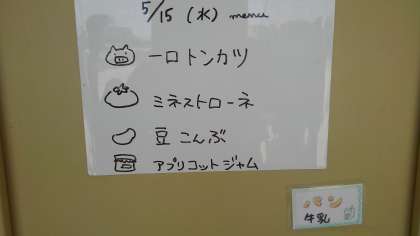 5/15 (水) menu
一口トンカツ
ミネストローネ
豆こんぶ
アプリコットジャム
パン
牛乳